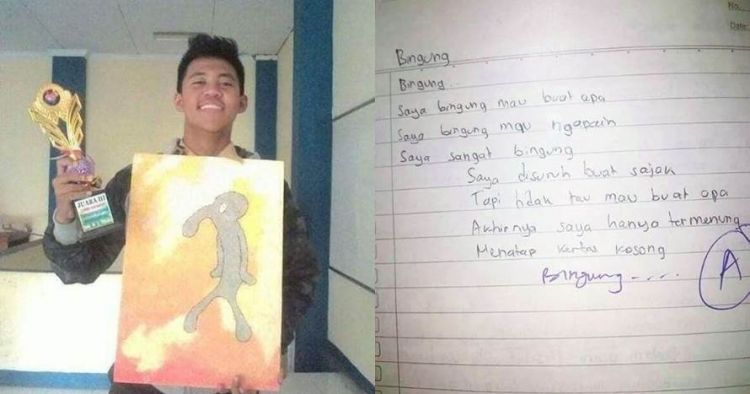 JUARA III
No.
Date
Bingung
Bingung..
Saya bingung mau buat apa
Saya bingung mau ngapain
Saya sangat bingung
Saya disuruh buat sajak
Tapi tidak tau mau buat apa
Akhirnya saya hanya termenung
Menatap kertas kosong
Bingung....
A